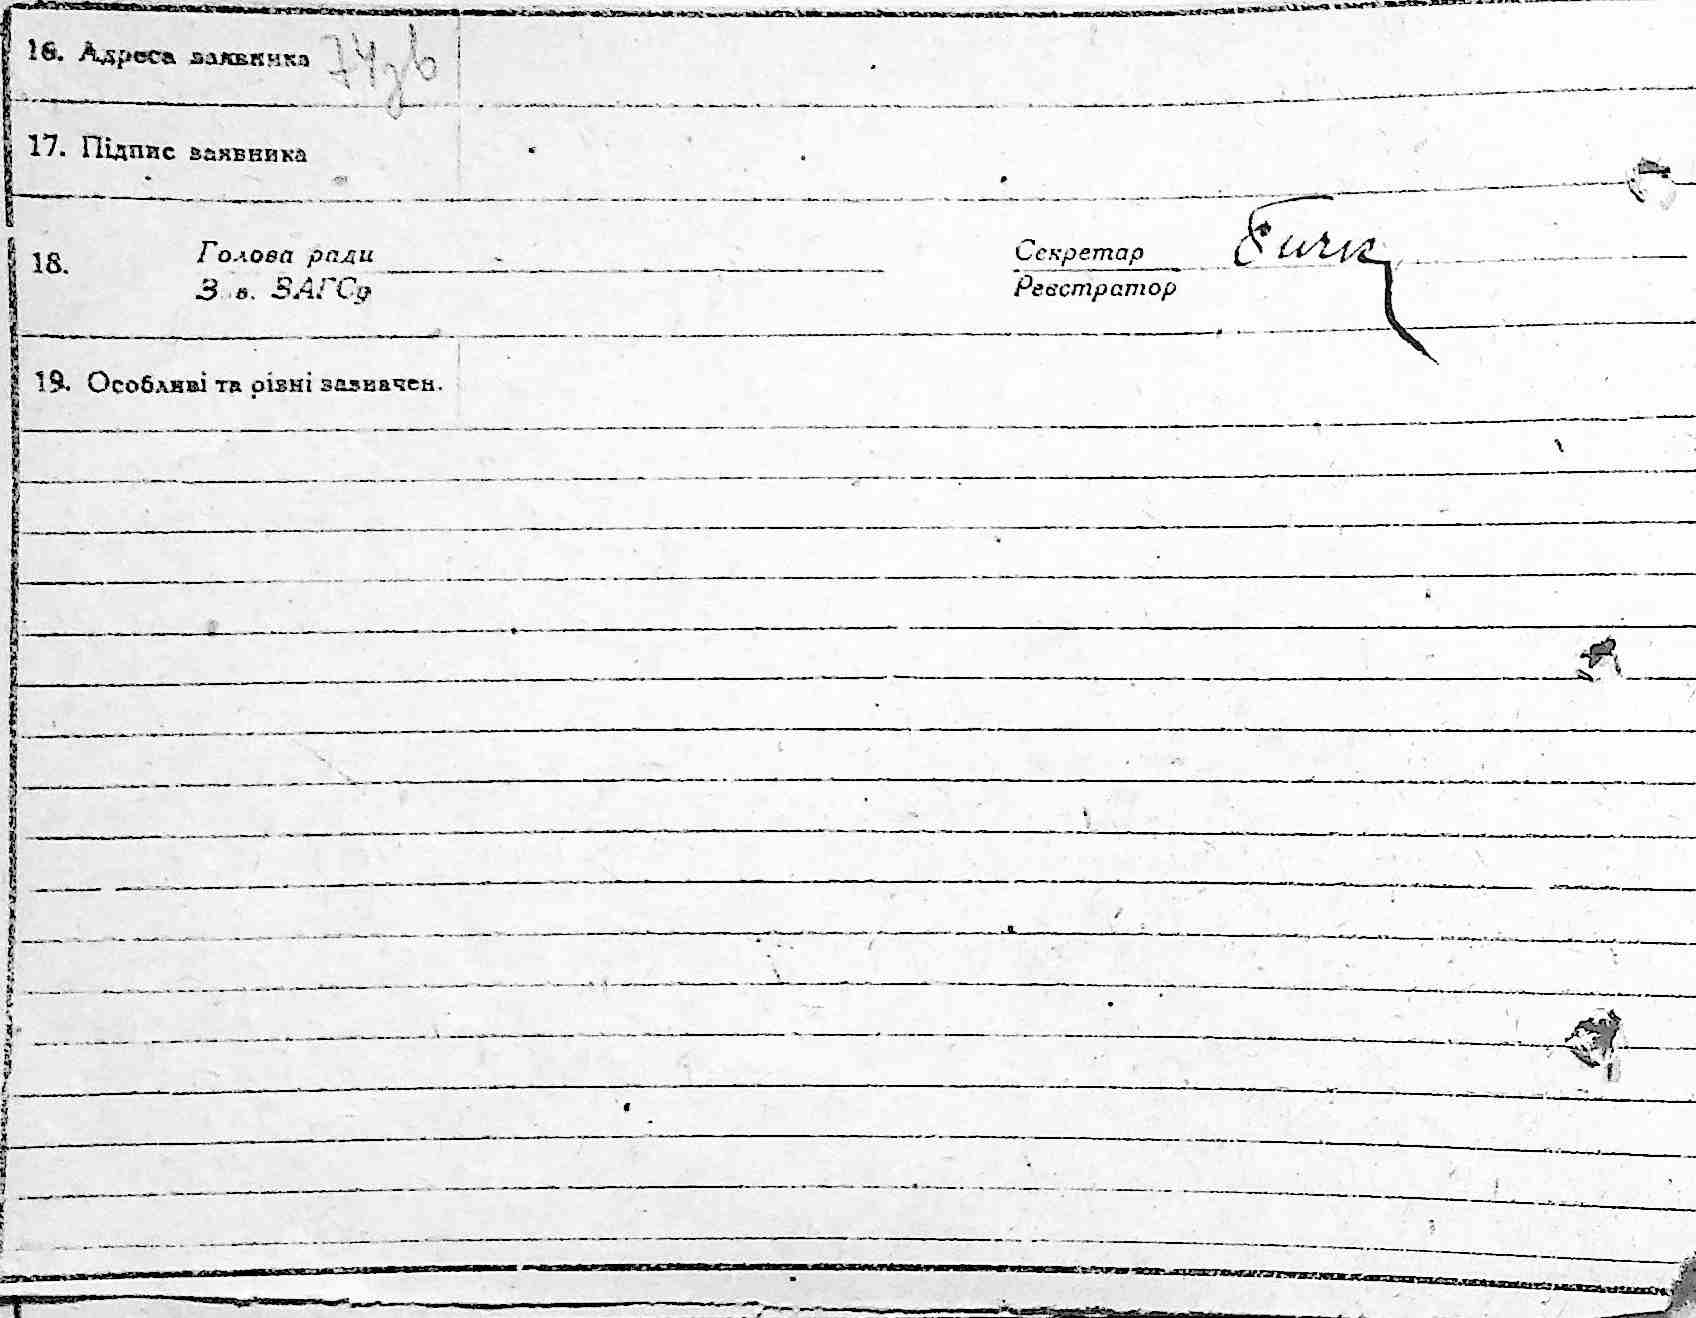 16. Адреса заявника
17. Підпис заявника
18. Голова ради Секретар
З в. ЗАГСд Реєстратор
19. Особливі та різні зазначен.